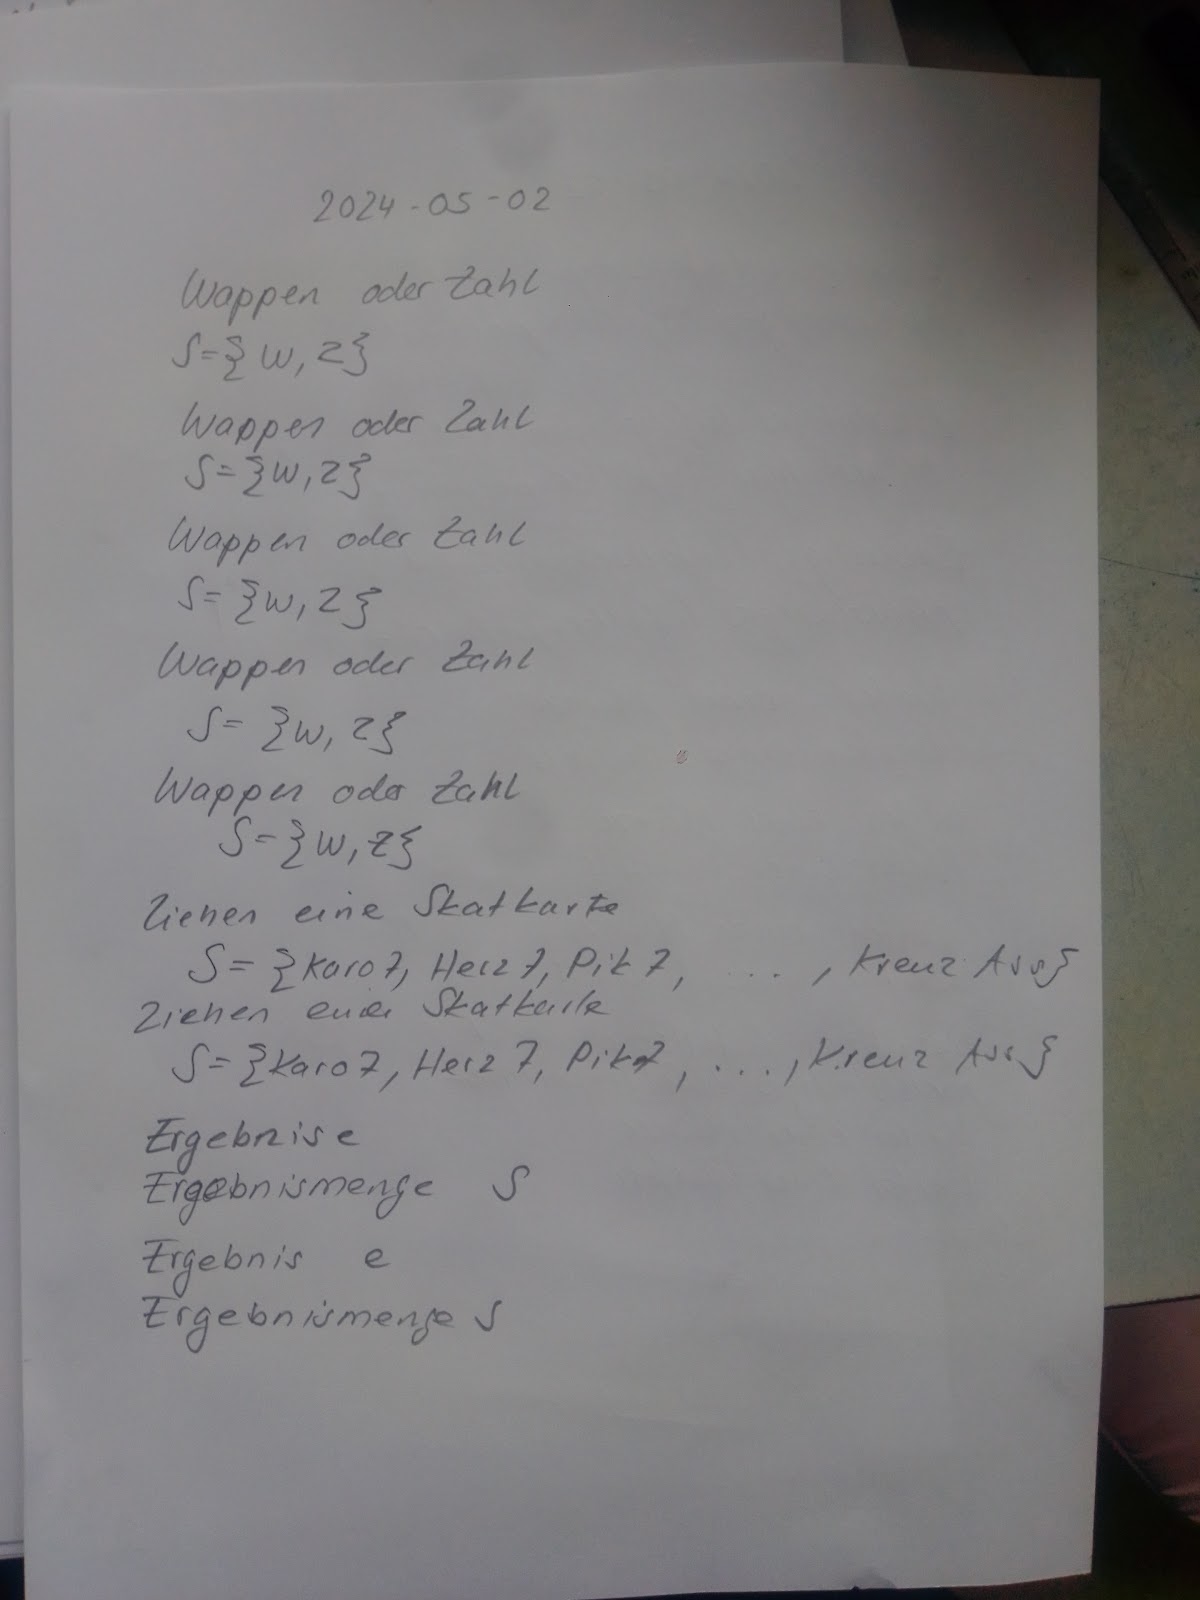 2024-05-02
Wappen oder Zahl
S={W,Z}
Wappen oder Zahl
S={W,Z}
Wappen oder Zahl
S={W,Z}
Wappen oder Zahl
S={W,Z}
Wappen oder Zahl
S={W,Z}
Ziehen eine Skatkarte
S={Karo 7, Herz 7, Pik 7, ..., Kreuz Ass}
Ziehen einer Skatkarte
S={Karo 7, Herz 7, Pik 7, ..., Kreuz Ass}
Ergebnis e
Ergebnismenge S
Ergebnis e
Ergebnismenge S